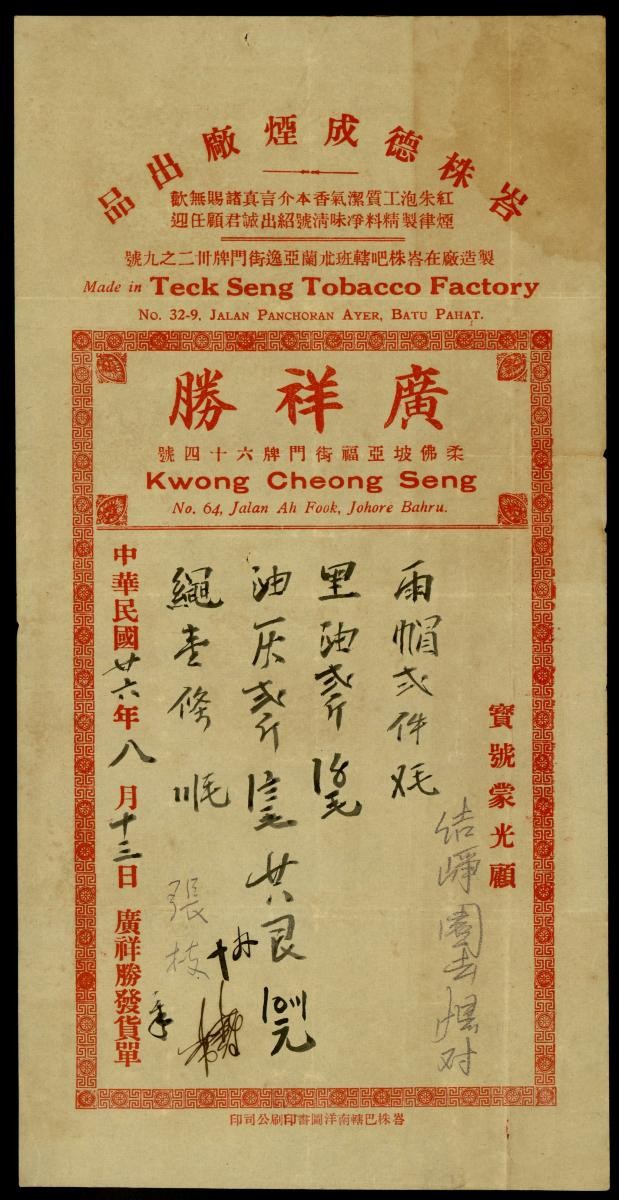 峇株德成煙廠出品
紅煙
朱律
泡製
工精
質料
潔淨
氣味
香清
本號
介紹
言出
真誠
諸君
賜顧
無任
歡迎
製造廠在峇株吧轄班朮蘭亞逸街門牌卅二之九號
Made in Teck Seng Tobacco Factory
No. 32-9, Jalan Panchoran Ayer, Batu Pahat.
廣祥勝
柔佛坡亞福街門牌六十四號
Kwong Cheong Seng
No. 64, Jalan Ah Fook, Johore Bahru.
寶號蒙光顧
雨帽弍件
里油弍斤
油灰弍斤
共艮
繩壹條
張枝
中華民國廿六年八月十三日 廣祥勝發貨單
峇株巴轄南洋圖書印刷公司印